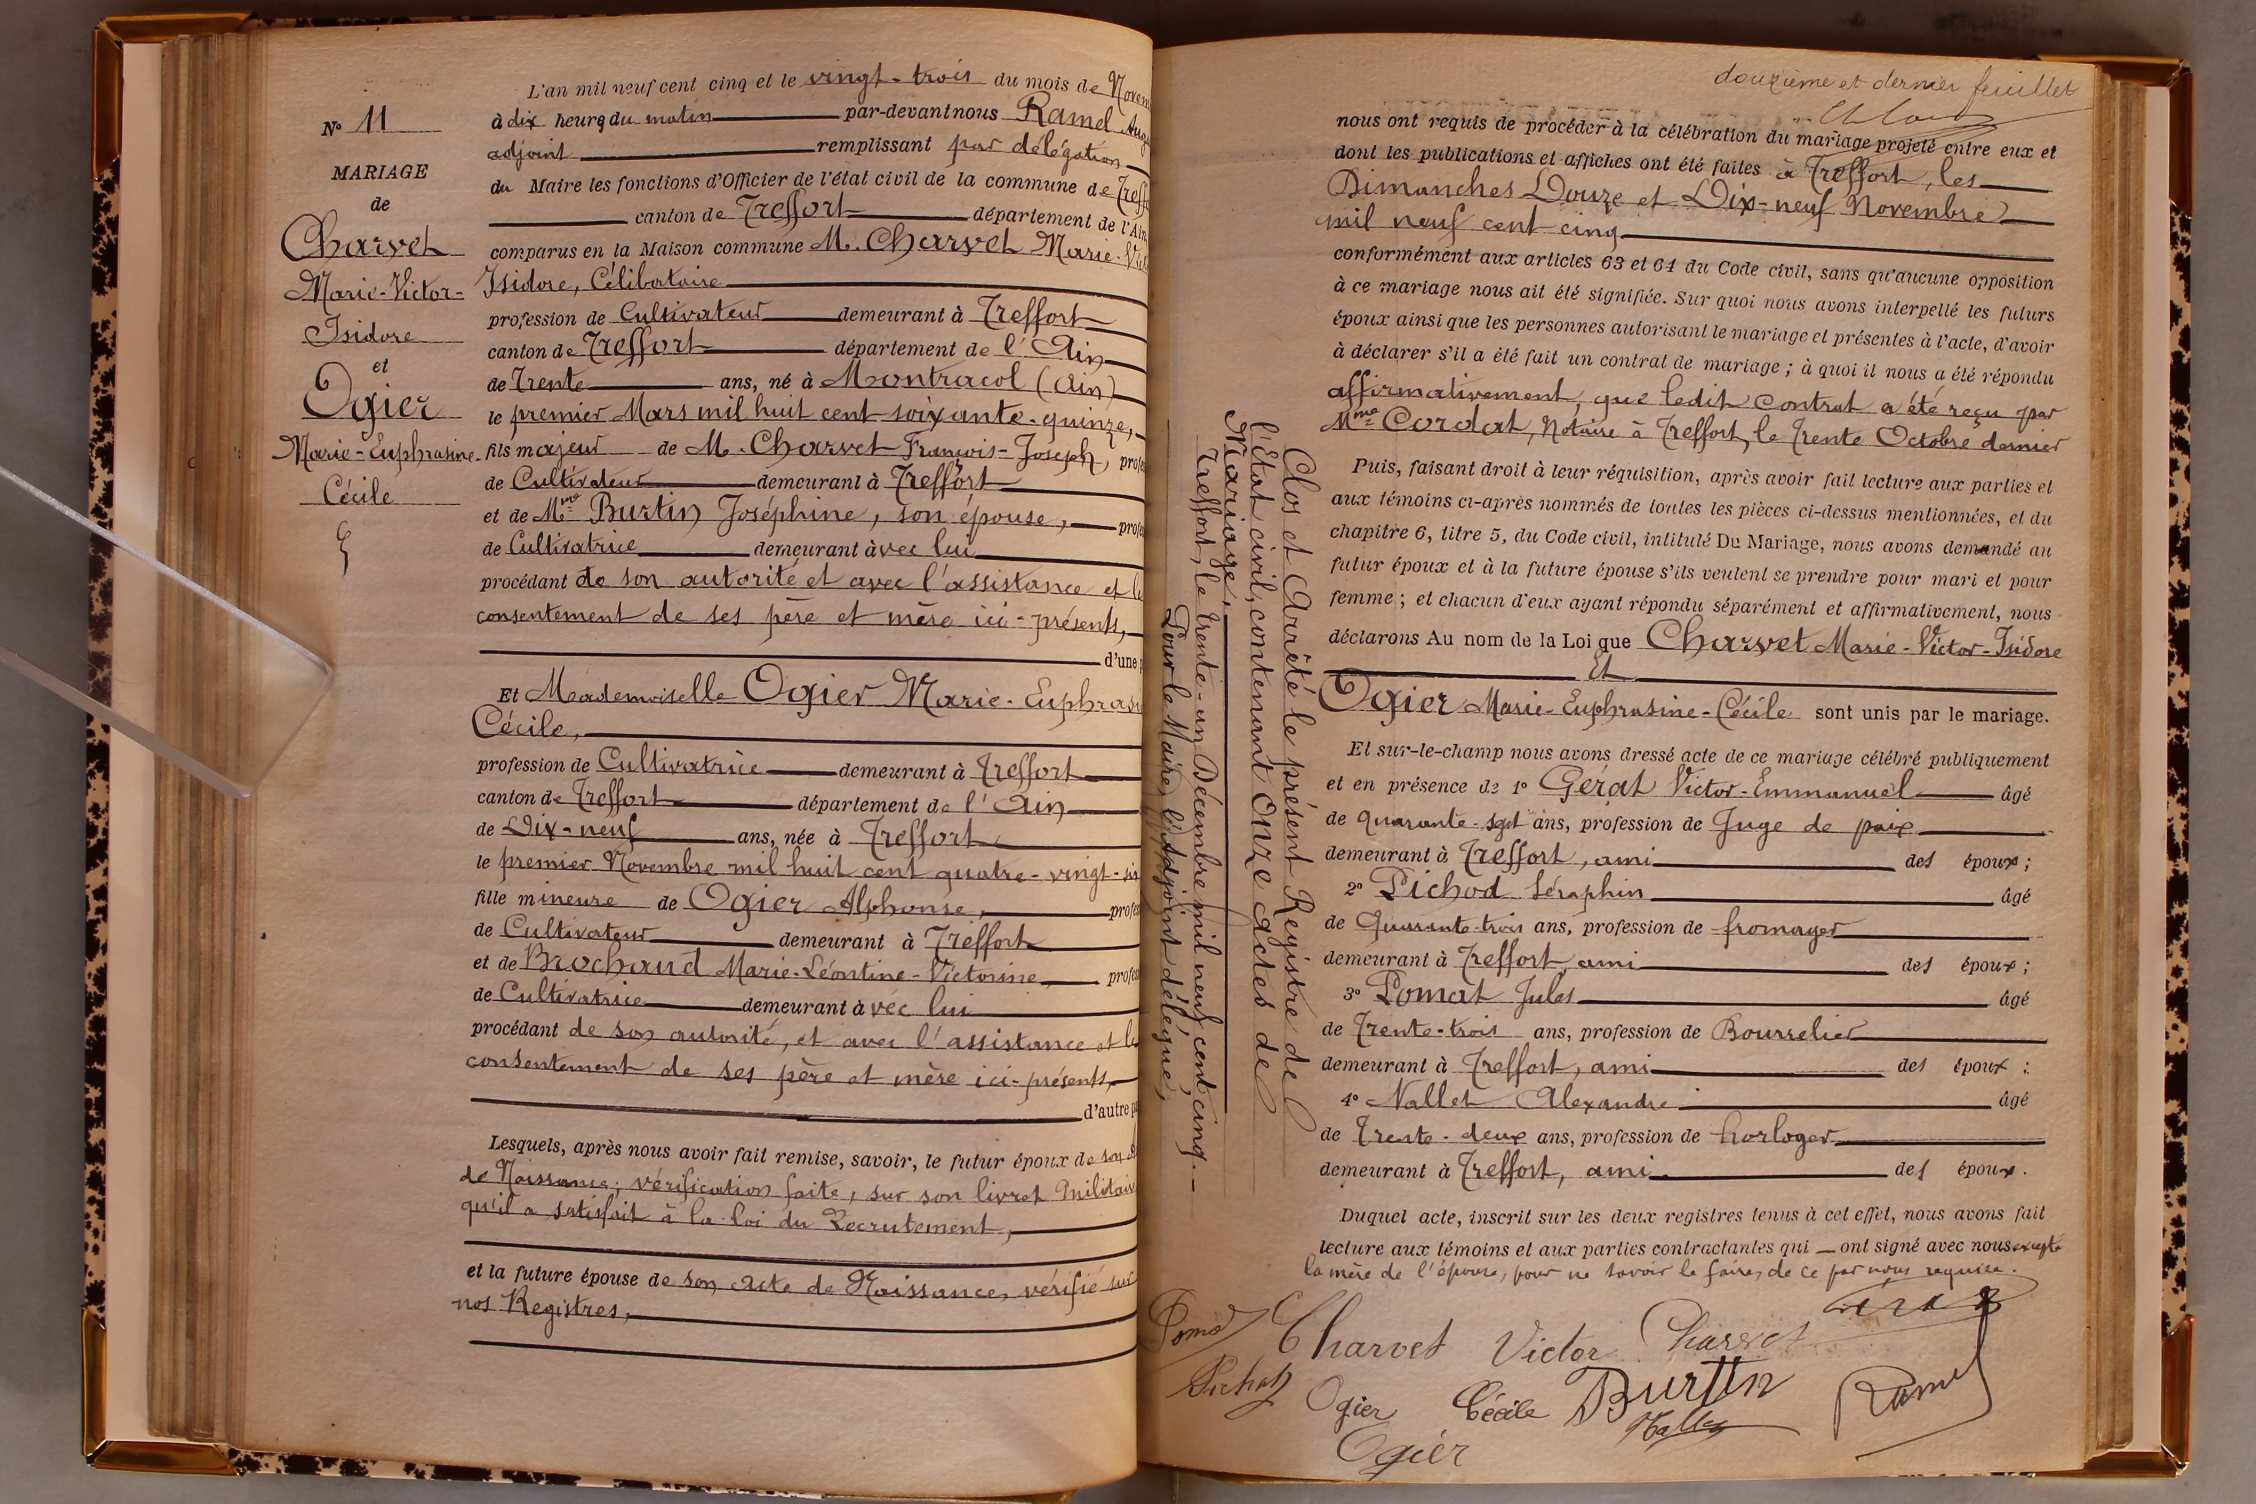 L'an mil neuf cent cinq et le vingt-trois du mois de Novem
à dix heures du matin par-devant nous Ramel Aug
adjoint remplissant par délégation,
du Maire les fonctions d'Officier de l'état civil de la commune de Treffo
canton de Treffort département de l'Ain
comparus en la Maison commune M. Charvet Marie-Vict
Isidore, Célibataire
profession de Cultivateur demeurant à Treffort
canton de Treffort département de l'Ain
de Trente ans, né à Montracol (Ain)
le premier Mars mil huit cent soixante-quinze,
fils majeur de M. Charvet François-Joseph, profes
de Cultivateur demeurant à Treffort
et de Mme Burtin Joséphine, son épouse, profes
de Cultivatrice demeurant àvec lui
procédant de son autorité et avec l'assistance et le
consentement de ses père et mère ici-présents,
d'une p
Et Mademoiselle Ogier Marie-Euphrasi
Cécile,
profession de Cultivatrice demeurant à Treffort
canton de Treffort département de l'Ain
de Dix-neuf ans, née à Treffort
le premier Novembre mil huit cent quatre-vingt-six
fille mineure de Ogier Alphonse, profes
de Cultivateur demeurant à Treffort
et de Brochand Marie-Léontine-Victorine profes
de Cultivatrice demeurant àvec lui
procédant de son autorité, et avec l'assistance et le
consentement de ses père et mère ici-présents,
d'autre pa
Lesquels, après nous avoir fait remise, savoir, le futur époux de son
de Naissance; vérification faite, sur son livret Militaire
qu'il a satisfait à la loi du Recrutement,
et la future épouse de son acte de Naissance, vérifié sur
nos Registres,
No 11
MARIAGE
de
Charvet
Marie-Victor-
Isidore
et
Ogier
Marie-Euphrasine-
Cécile
Clos et Arrêté le présent Registre de
l'Etat civil, contenant Onze Actes de
Mariage.
Treffort, le trente-un Décembre mil neuf cent cinq.
Pour le Maire, l'Adjoint délégué,
douzième et dernier feuillet
nous ont requis de procéder à la célébration du mariage projeté entre eux et
dont les publications et affiches ont été faites à Treffort, les
Dimanches Douze et Dix-neuf Novembre
mil neuf cent cinq
conformément aux articles 63 et 64 du Code civil, sans qu'aucune opposition
à ce mariage nous ait été signifiée. Sur quoi nous avons interpellé les futurs
époux ainsi que les personnes autorisant le mariage et présentes à l'acte, d'avoir
à déclarer s'il a été fait un contrat de mariage; à quoi il nous a été répondu
affirmativement, que ledit contrat a été reçu par
Mme Cordat, Notaire à Treffort, le Trente Octobre dernier
Puis, faisant droit à leur réquisition, après avoir fait lecture aux parties et
aux témoins ci-après nommés de toutes les pièces ci-dessus mentionnées, et du
chapitre 6, titre 5, du Code civil, intitulé Du Mariage, nous avons demandé au
futur époux et à la future épouse s'ils veulent se prendre pour mari et pour
femme; et chacun d'eux ayant répondu séparément et affirmativement, nous
déclarons Au nom de la Loi que Charvet Marie-Victor-Isidore
Et
Ogier Marie-Euphrasine-Cécile sont unis par le mariage.
Et sur-le-champ nous avons dressé acte de ce mariage célébré publiquement
et en présence de 1o Gérat Victor-Emmanuel âgé
de quarante-sept ans, profession de Juge de paix
demeurant à Treffort, ami des époux;
2o Pichod Séraphin âgé
de Quarante-trois ans, profession de fromager
demeurant à Treffort, ami des époux;
3o Pomat Jules âgé
de Trente-trois ans, profession de Bourrelier
demeurant à Treffort, ami des époux;
4o Nallet Alexandre âgé
de Trente-deux ans, profession de horloger
demeurant à Treffort, ami des époux.
Duquel acte, inscrit sur les deux registres tenus à cet effet, nous avons fait
lecture aux témoins et aux parties contractantes qui ont signé avec nous excepté
la mère de l'épouse, pour ne savoir le faire, de ce par nous requise.
Pomat Charvet Victor Charvet Gérat
Pichod Ogier Cécile Burtin Ramel
Ogier Nallet